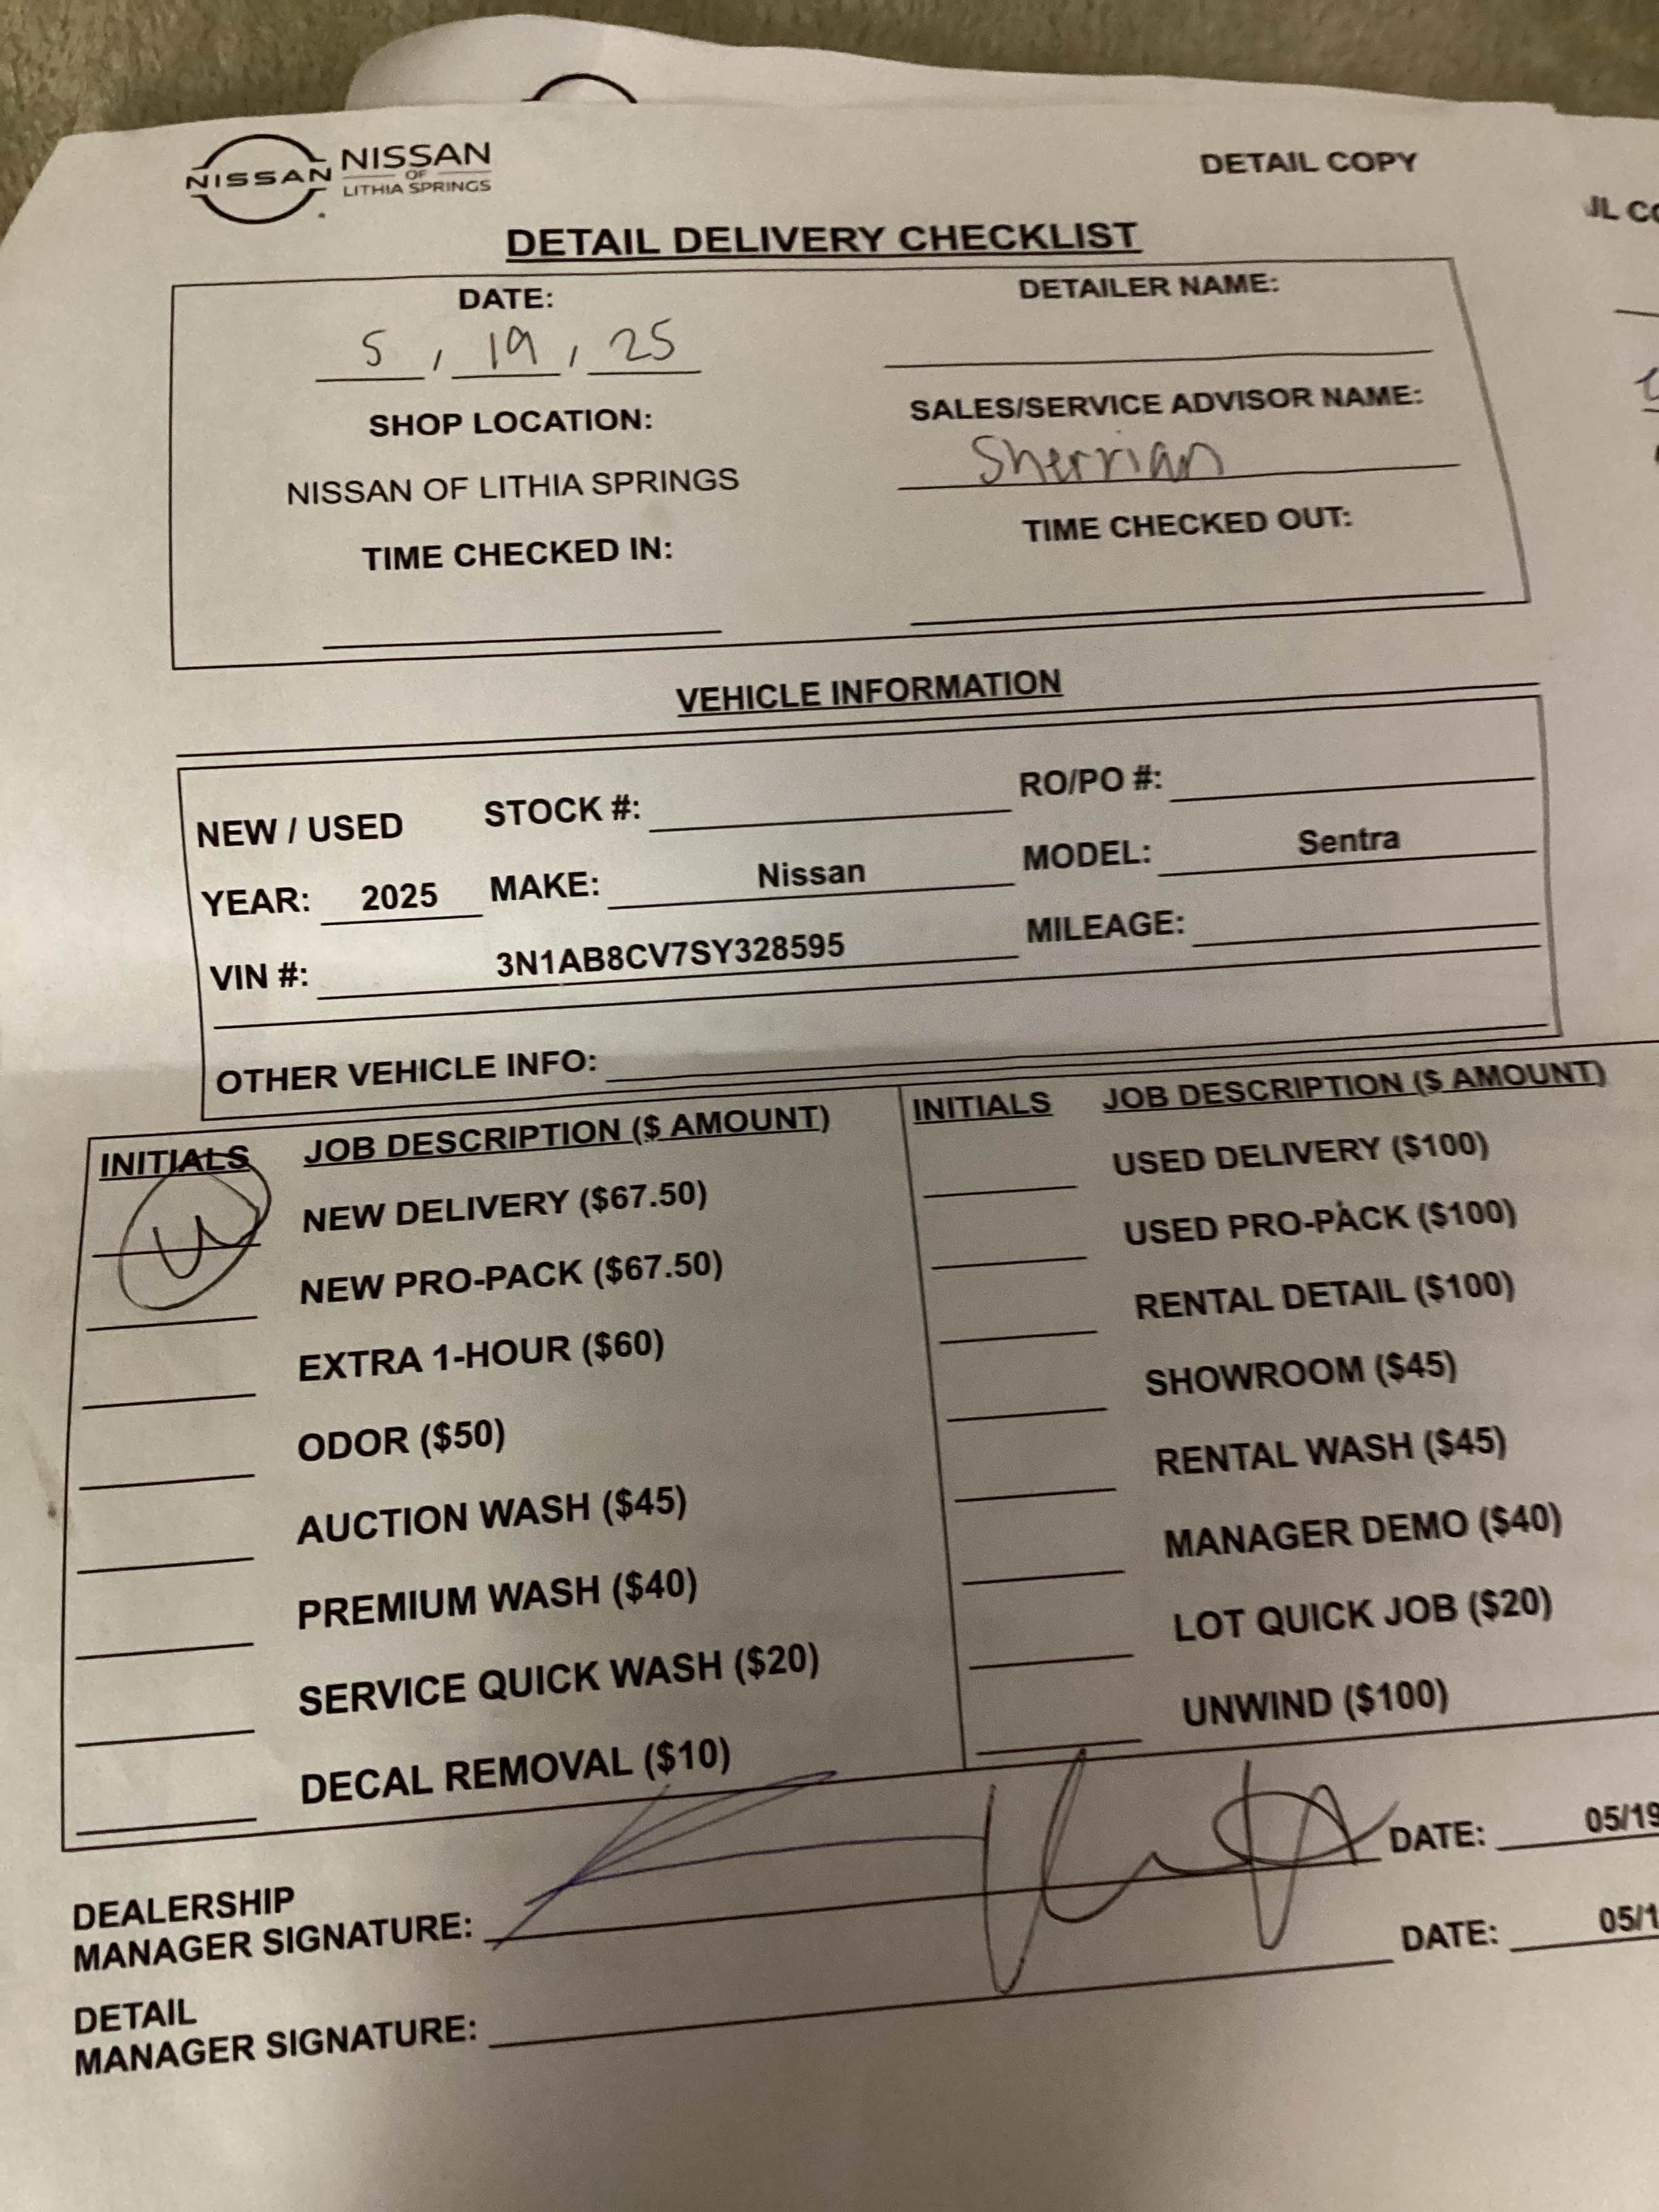 NISSAN NISSAN OF LITHIA SPRINGS
DETAIL COPY
DETAIL DELIVERY CHECKLIST
DATE: DETAILER NAME:
5 , 19 , 25
SHOP LOCATION: SALES/SERVICE ADVISOR NAME:
NISSAN OF LITHIA SPRINGS Sherrian
TIME CHECKED IN: TIME CHECKED OUT:
VEHICLE INFORMATION
NEW / USED STOCK #: RO/PO #:
YEAR: 2025 MAKE: Nissan MODEL: Sentra
VIN #: 3N1AB8CV7SY328595 MILEAGE:
OTHER VEHICLE INFO:
INITIALS JOB DESCRIPTION ($ AMOUNT) INITIALS JOB DESCRIPTION ($ AMOUNT)
NEW DELIVERY ($67.50) USED DELIVERY ($100)
NEW PRO-PACK ($67.50) USED PRO-PACK ($100)
EXTRA 1-HOUR ($60) RENTAL DETAIL ($100)
ODOR ($50) SHOWROOM ($45)
AUCTION WASH ($45) RENTAL WASH ($45)
PREMIUM WASH ($40) MANAGER DEMO ($40)
SERVICE QUICK WASH ($20) LOT QUICK JOB ($20)
DECAL REMOVAL ($10) UNWIND ($100)
DEALERSHIP
MANAGER SIGNATURE: DATE: 05/19
DETAIL
MANAGER SIGNATURE: DATE: 05/1